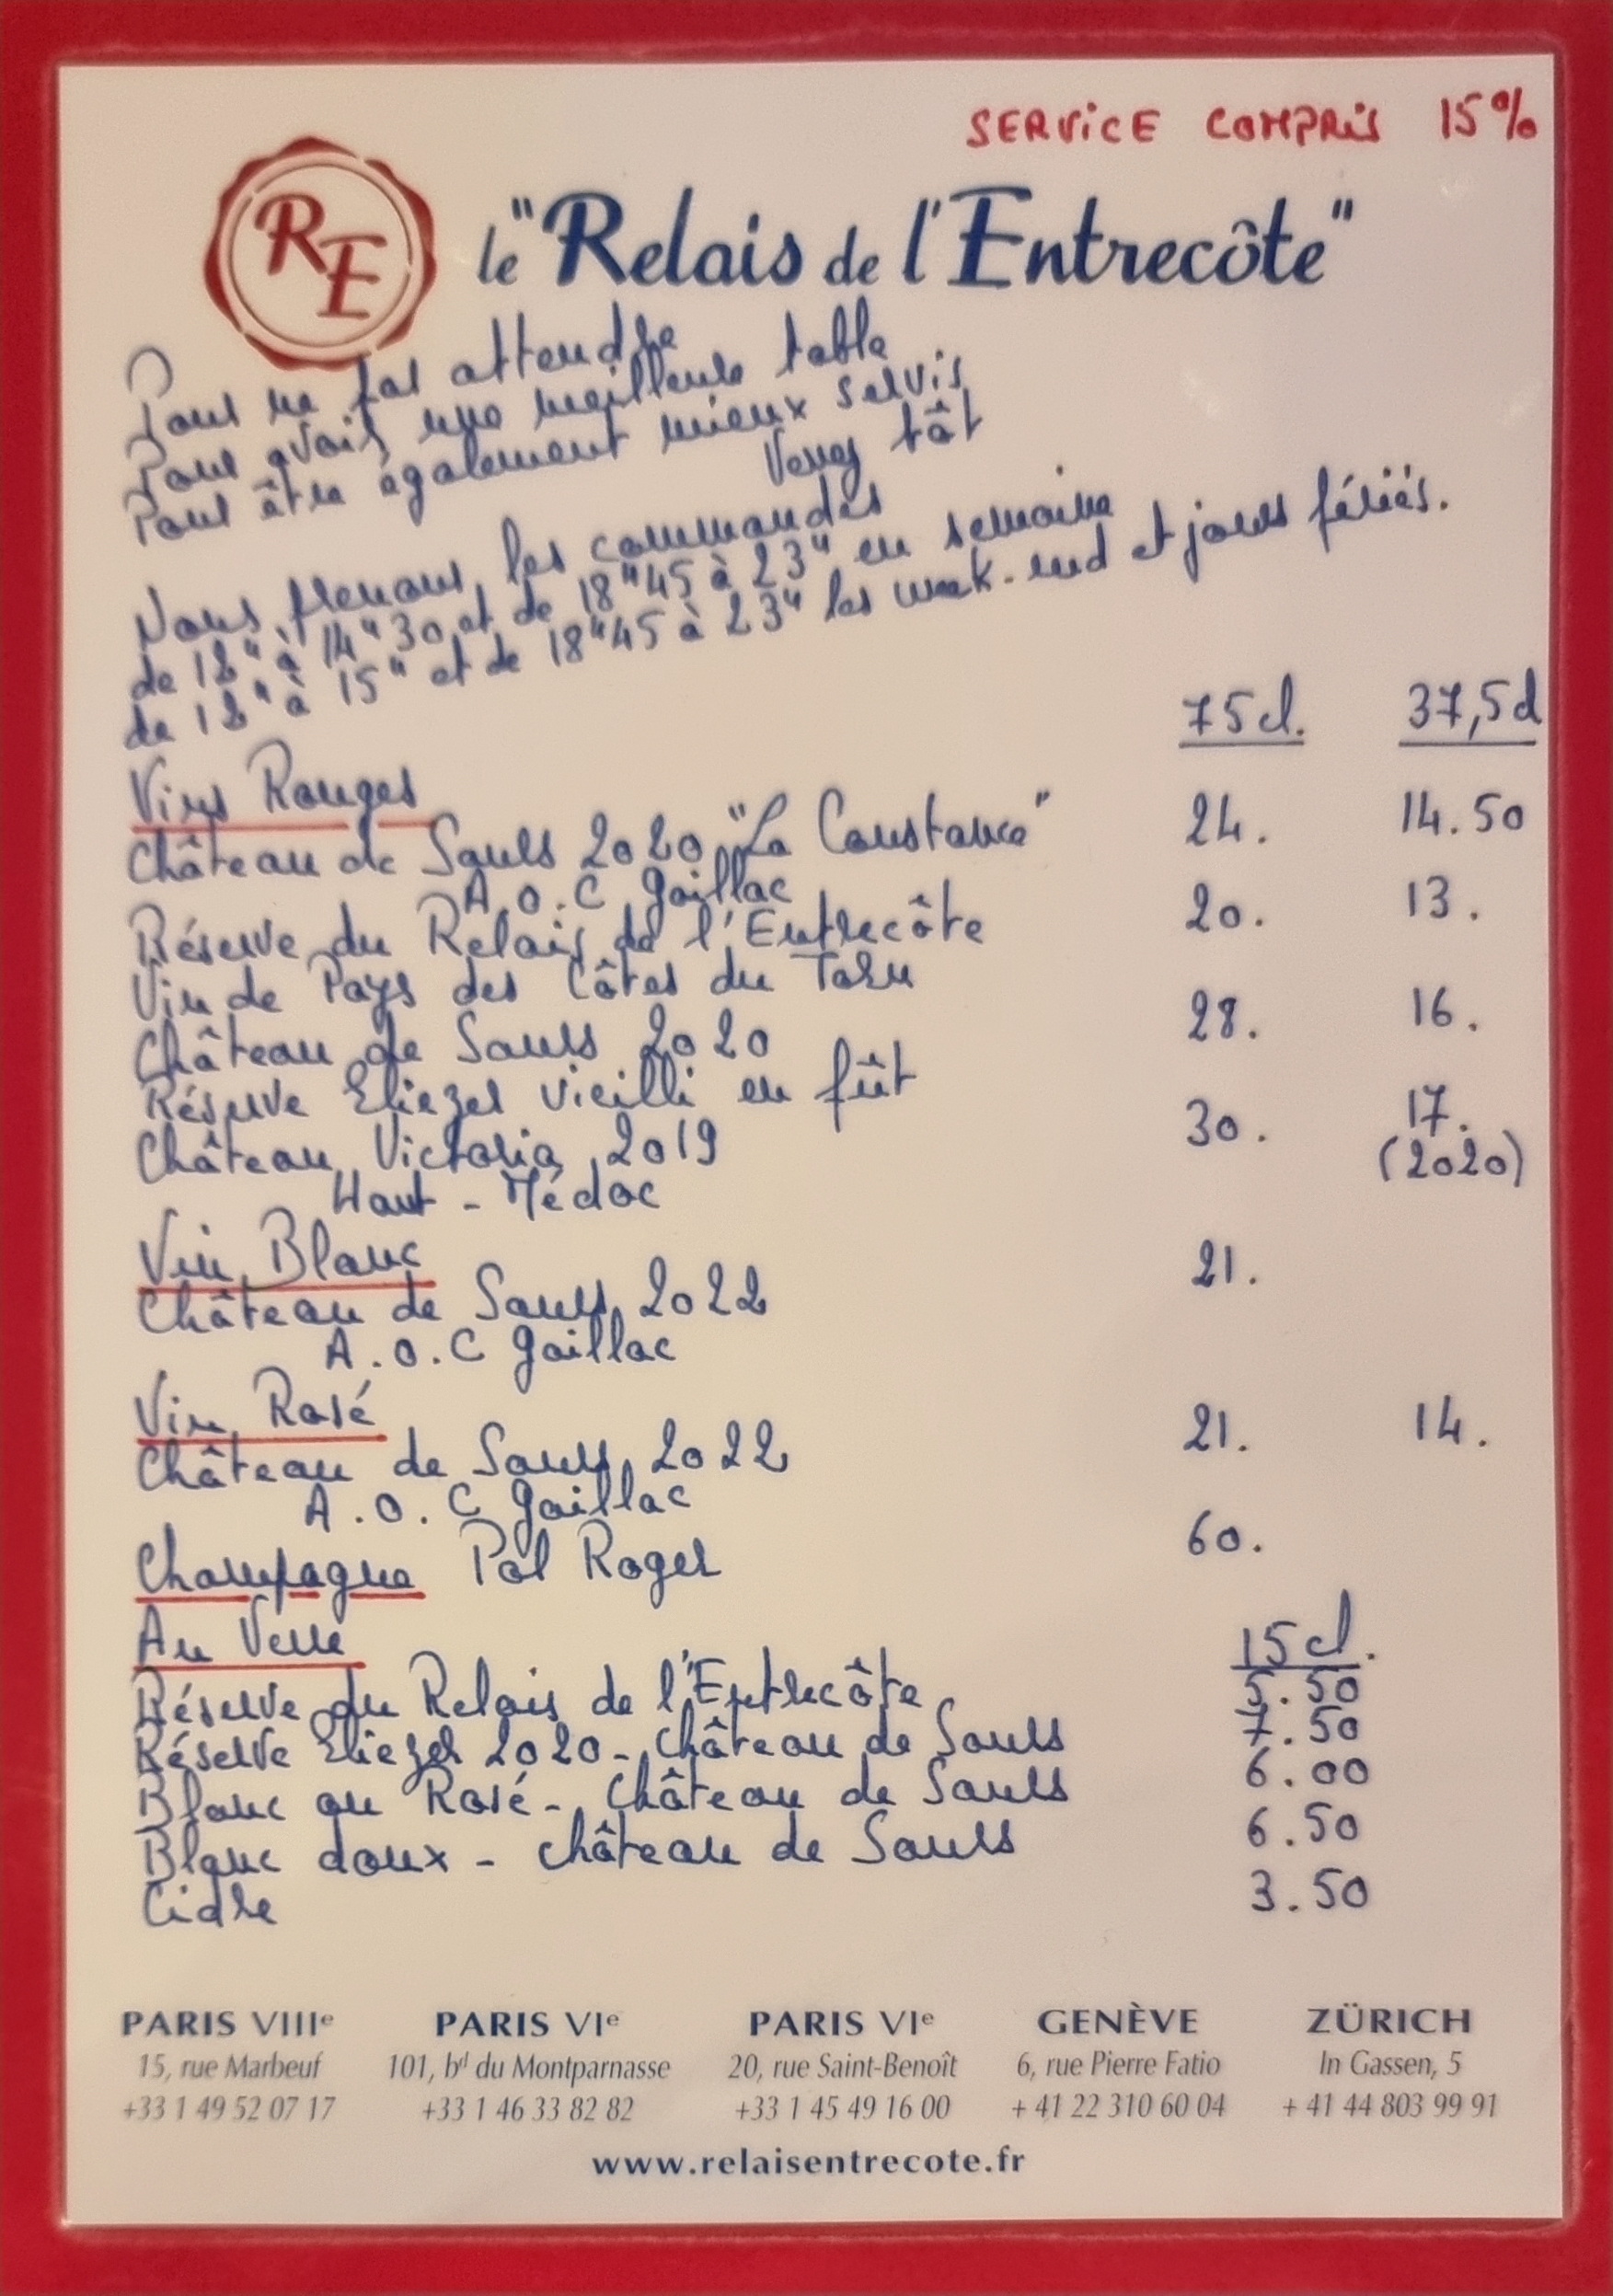 SERVICE COMPRIS 15%
RE
le "Relais de l'Entrecôte"
Pour ne pas attendre
Pour avoir une meilleure table
Pour être également mieux servis,
Venez tôt
Nous prenons les commandes
de 12H à 14H30 et de 18H45 à 23H en semaine
de 12H à 15H et de 18H45 à 23H les week-end et jours fériés.
75cl. 37,5cl
Vins Rouges
Château de Saurs 2020 "La Constance" 24. 14.50
A.O.C Gaillac
Réserve du Relais de l'Entrecôte 20. 13.
Vin de Pays des Côtes du Tarn
Château de Saurs 2020 28. 16.
Réserve Eliezer vieilli en fût
Château Victoria 2019 30. 17.
Haut-Médoc (2020)
Vin Blanc
Château de Saurs 2022 21.
A.O.C Gaillac
Vin Rosé
Château de Saurs 2022 21. 14.
A.O.C Gaillac
Champagne Pol Roger 60.
Au Verre 15cl.
Réserve du Relais de l'Entrecôte 5.50
Réserve Eliezer 2020 - Château de Saurs 7.50
Blanc ou Rosé - Château de Saurs 6.00
Blanc doux - château de Saurs 6.50
Cidre 3.50
PARIS VIIIe PARIS VIe PARIS VIe GENÈVE ZÜRICH
15, rue Marbeuf 101, bd du Montparnasse 20, rue Saint-Benoît 6, rue Pierre Fatio In Gassen, 5
+33 1 49 52 07 17 +33 1 46 33 82 82 +33 1 45 49 16 00 + 41 22 310 60 04 + 41 44 803 99 91
www.relaisentrecote.fr